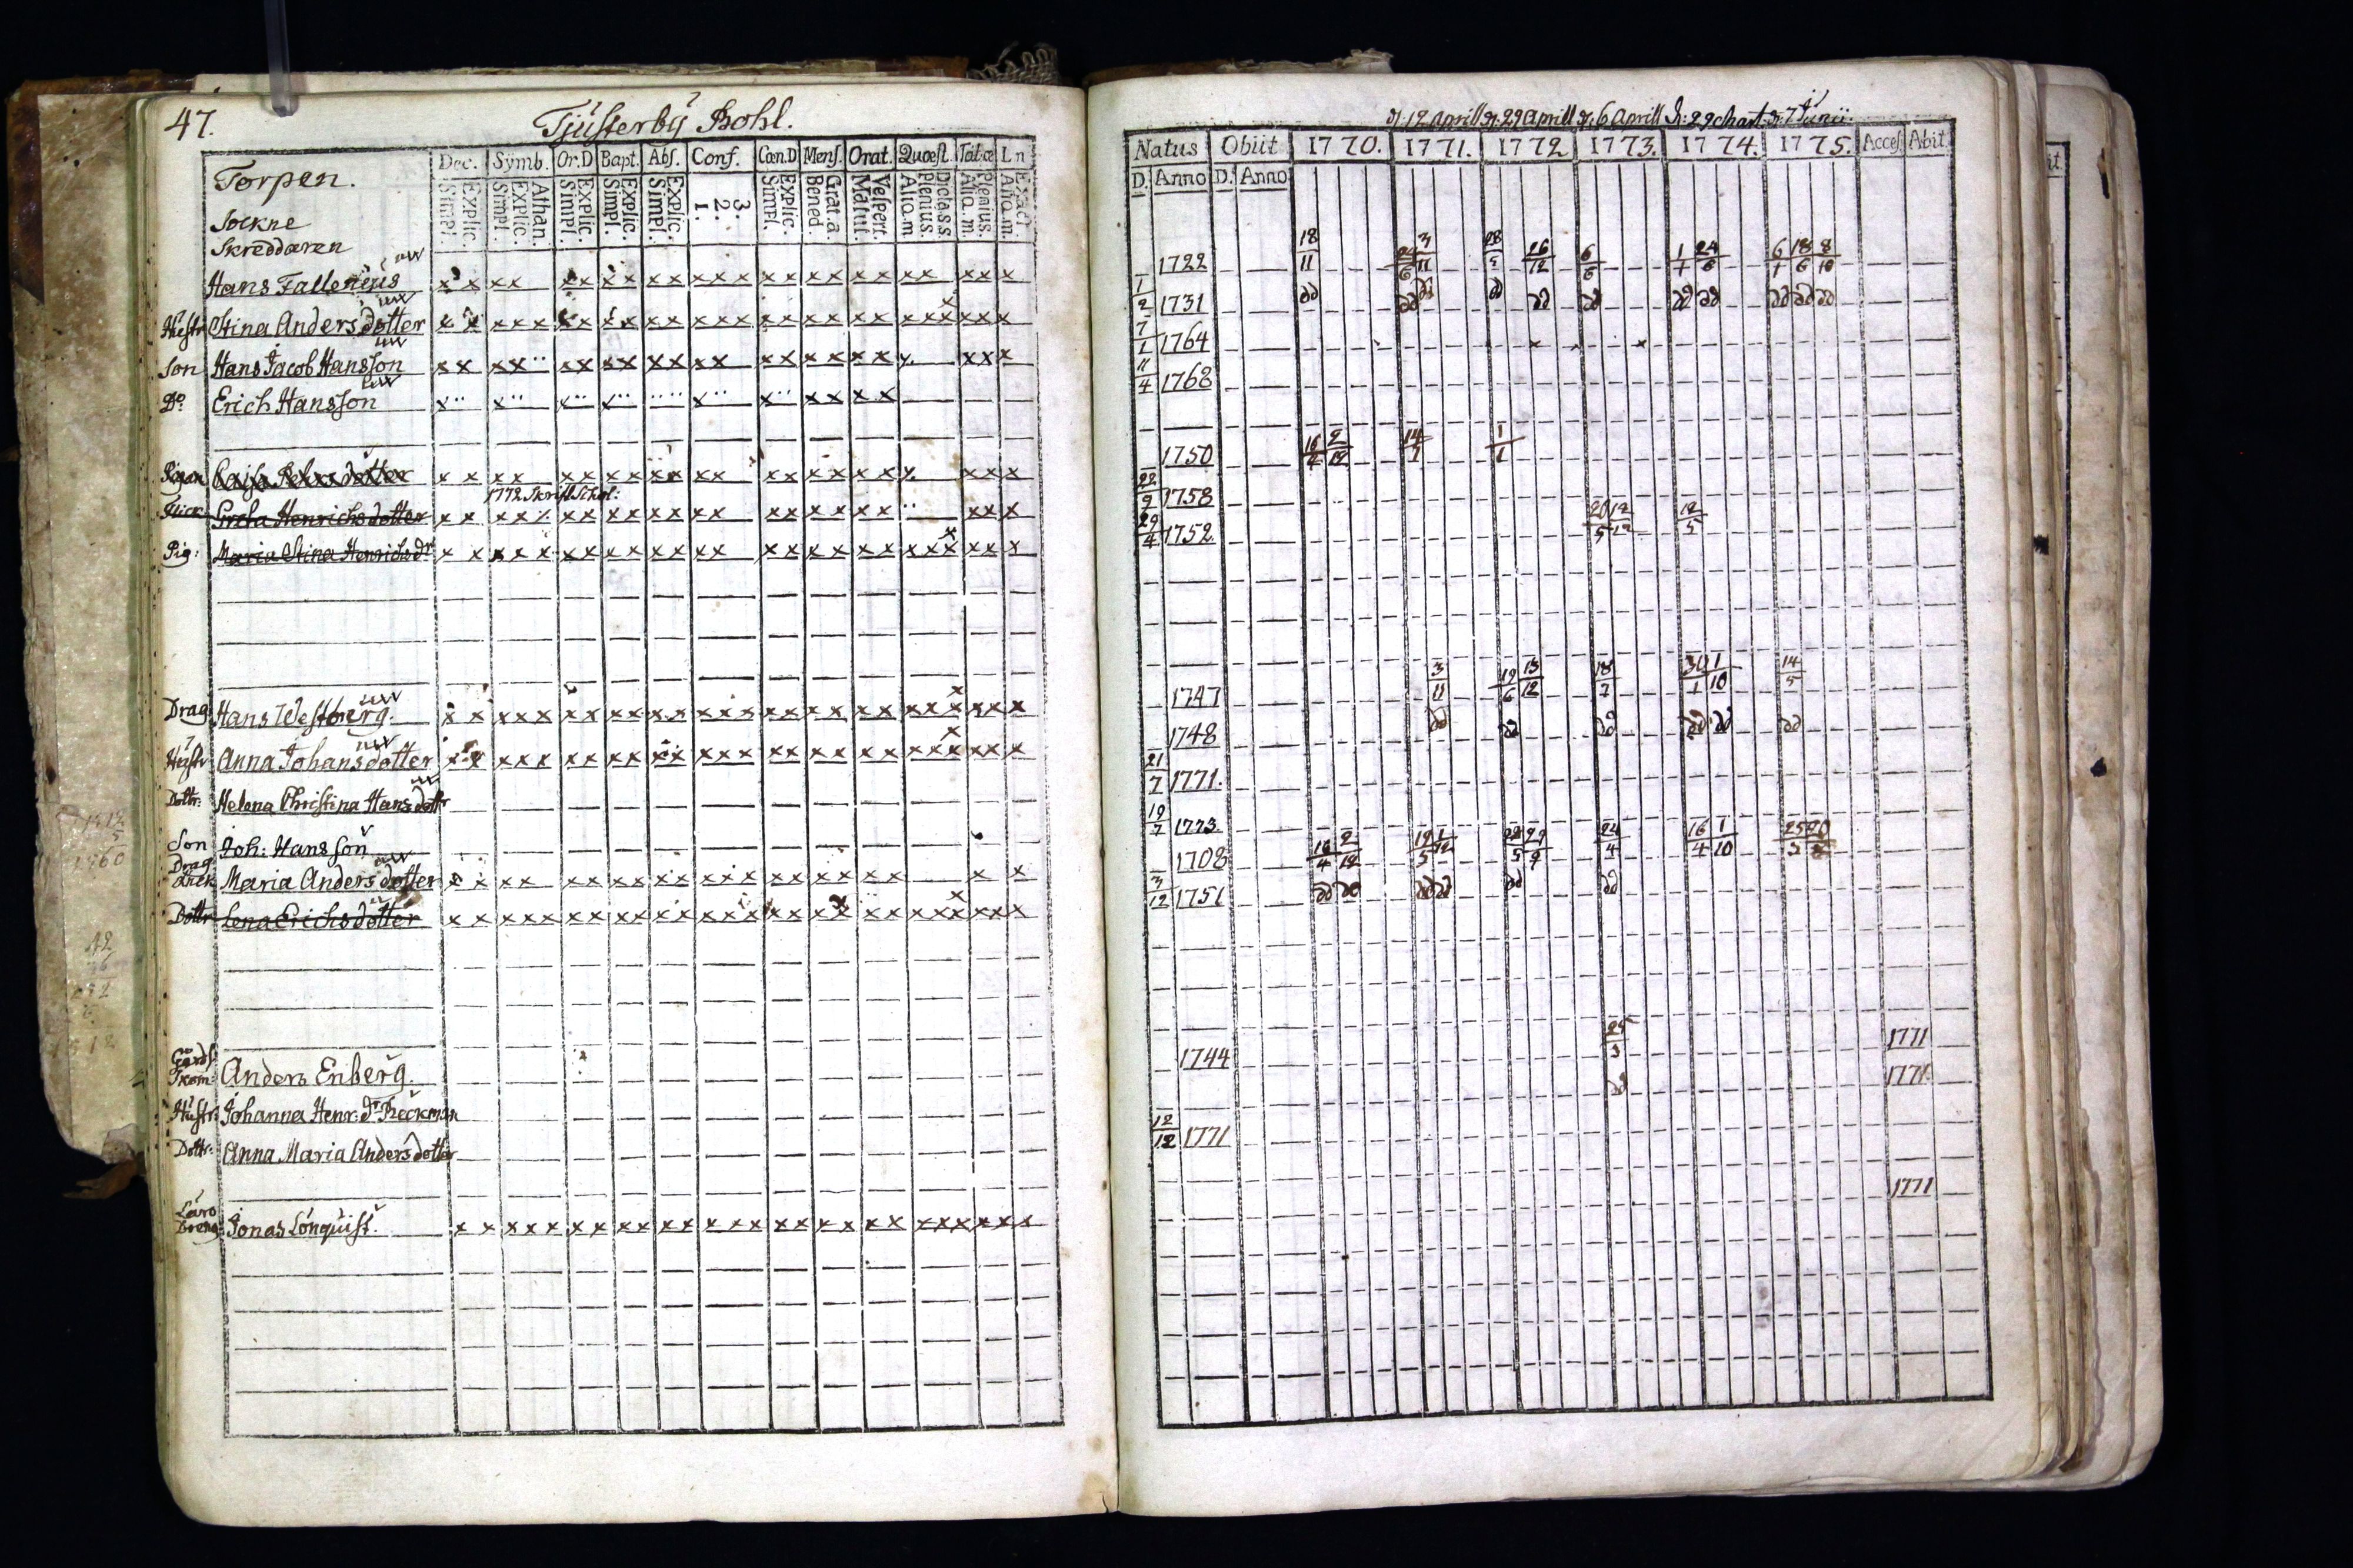 47.
Tjusterby Bohl.
Torpen.
Sockne
Skreddaren
Dec. Symb. Or.D Bapt. Abs. Conf. Cœn.D Mens. Orat. Quæst. Tab.œ L n
Explic. Simpl.
Athan. Explic. Simpl.
Explic. Simpl.
Explic. Simpl.
Explic. Simpl.
3. 2. 1.
Explic. Simpl.
Grat.a Bened.
Vespert. Matut.
Dicta s.s. Plenius. Aliq.m
Plenius. Aliq.m.
Exact. Aliq.m.
Hans Fallenius x x x x x x x x x x x x x x x x x x x x x x x x
Hustr Stina Andersdotter x x x x x x x x x x x x x x x x x x x x x x x x x x x
Son Hans Jacob Hansson x x x x x x x x x x x x x x x x x x x x x x x
Do Erich Hansson x x x x x x x x x x
Pigan Caisa Pehrsdotter x x x x x x x x x x x x x x x x x x x x x x
1772 Skrifl Schol:
Flick Greta Henrichsdotter x x x x x x x x x x x x x x x x x x x x x x
Pig: Maria Stina Henrichsdr x x x x x x x x x x x x x x x x x x x x x x x x x
Drag Hans Westberg. x x x x x x x x x x x x x x x x x x x x x x x x x x
Hustr Anna Johansdotter x x x x x x x x x x x x x x x x x x x x x x x x x x
Dottr: Helena Christina Hansdottr
Son Joh: Hansson
Drag
änck Maria Andersdotter x x x x x x x x x x x x x x x x x x x x x
Dottr Lena Erichsdotter x x x x x x x x x x x x x x x x x x x x x x x x x x
Gårds
Anders Enberg.
Hustr: Johanna Henr: dr Reckman
Dottr: Anna Maria Andersdotter
Läro
Dreng Jonas Lönquist. x x x x x x x x x x x x x x x x x x x x x x x x x x
d. 12 Aprill d. 29 Aprill d. 6 Aprill d. 29 d. 7 Junii.
Natus Obiit 1770. 1771. 1772 1773. 1774. 1775. Acces. Abit.
D. Anno D. Anno
1722 18/11 24/6 3/11 28/5 26/12 6/6 1/1 24/6 6/1 18/6 8/10
1/2 1731 dd dd dd dd dd dd dd dd dd dd dd
7/1 1764
11/4 1768
1750 16/4 2/12 14/7 1/1
22/9 1758
29/4 1752 20/5 12/12 12/5
1747 3/11 19/6 13/12 18/7 30/1 1/10 14/5
1748 dd dd dd dd dd dd
21/7 1771.
19/7 1773
1708 16/4 2/12 19/5 1/12 28/5 29/9 24/4 16/4 1/10
3/12 1751 dd dd dd dd dd dd
1744 25/3 1771
dd 1771
12/12 1771
1771